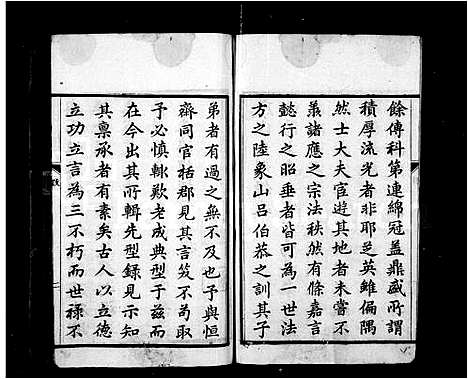 餘傳科第連綿冠蓋鼎盛所謂
積厚流光者非耶芝英雖偏隅
然士大夫官遊其地者未嘗不
義諸應之宗法秩然有條嘉言
懿行之昭垂者皆可為一世法
方之陸象山呂伯恭之訓其子
弟者有過之無不及與恒
齋同官栝郡見其言笑不苟取
予必慎輒歎老成典型于茲而
在今出其所輯先型錄見示知
其稟承者有素矣古人以立德
立功立言為三不朽而世祿不